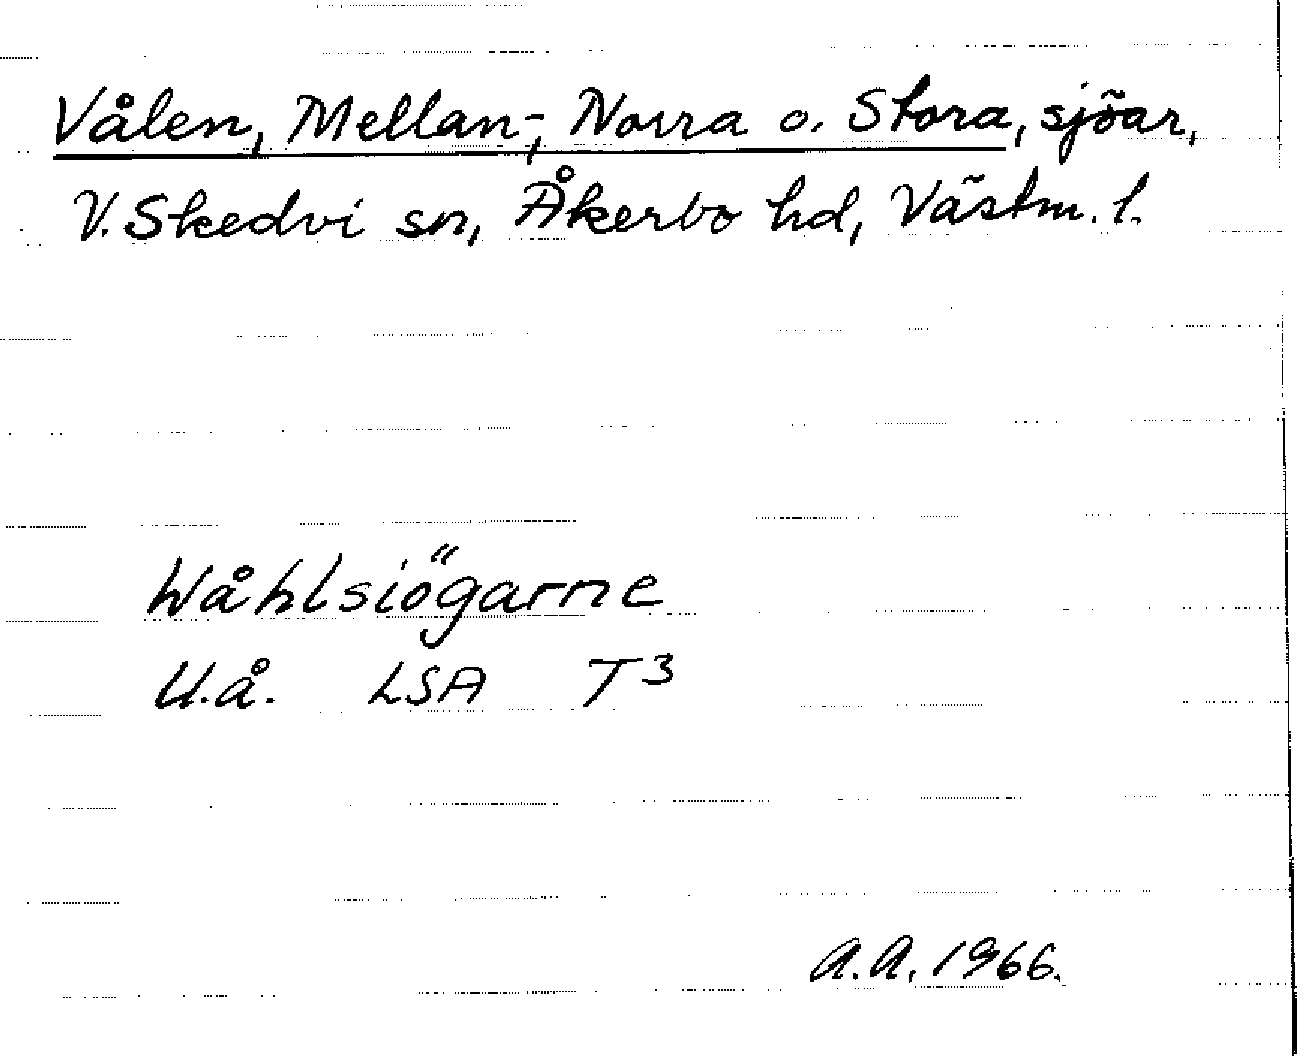 Vålen, Mellan-, Norra o. Stora, sjöar,
V. Skedvi sn, Åkerbo hd, Västm. l.
Wåhlsiögarne
U.å. LSA T3
A.A. 1966.